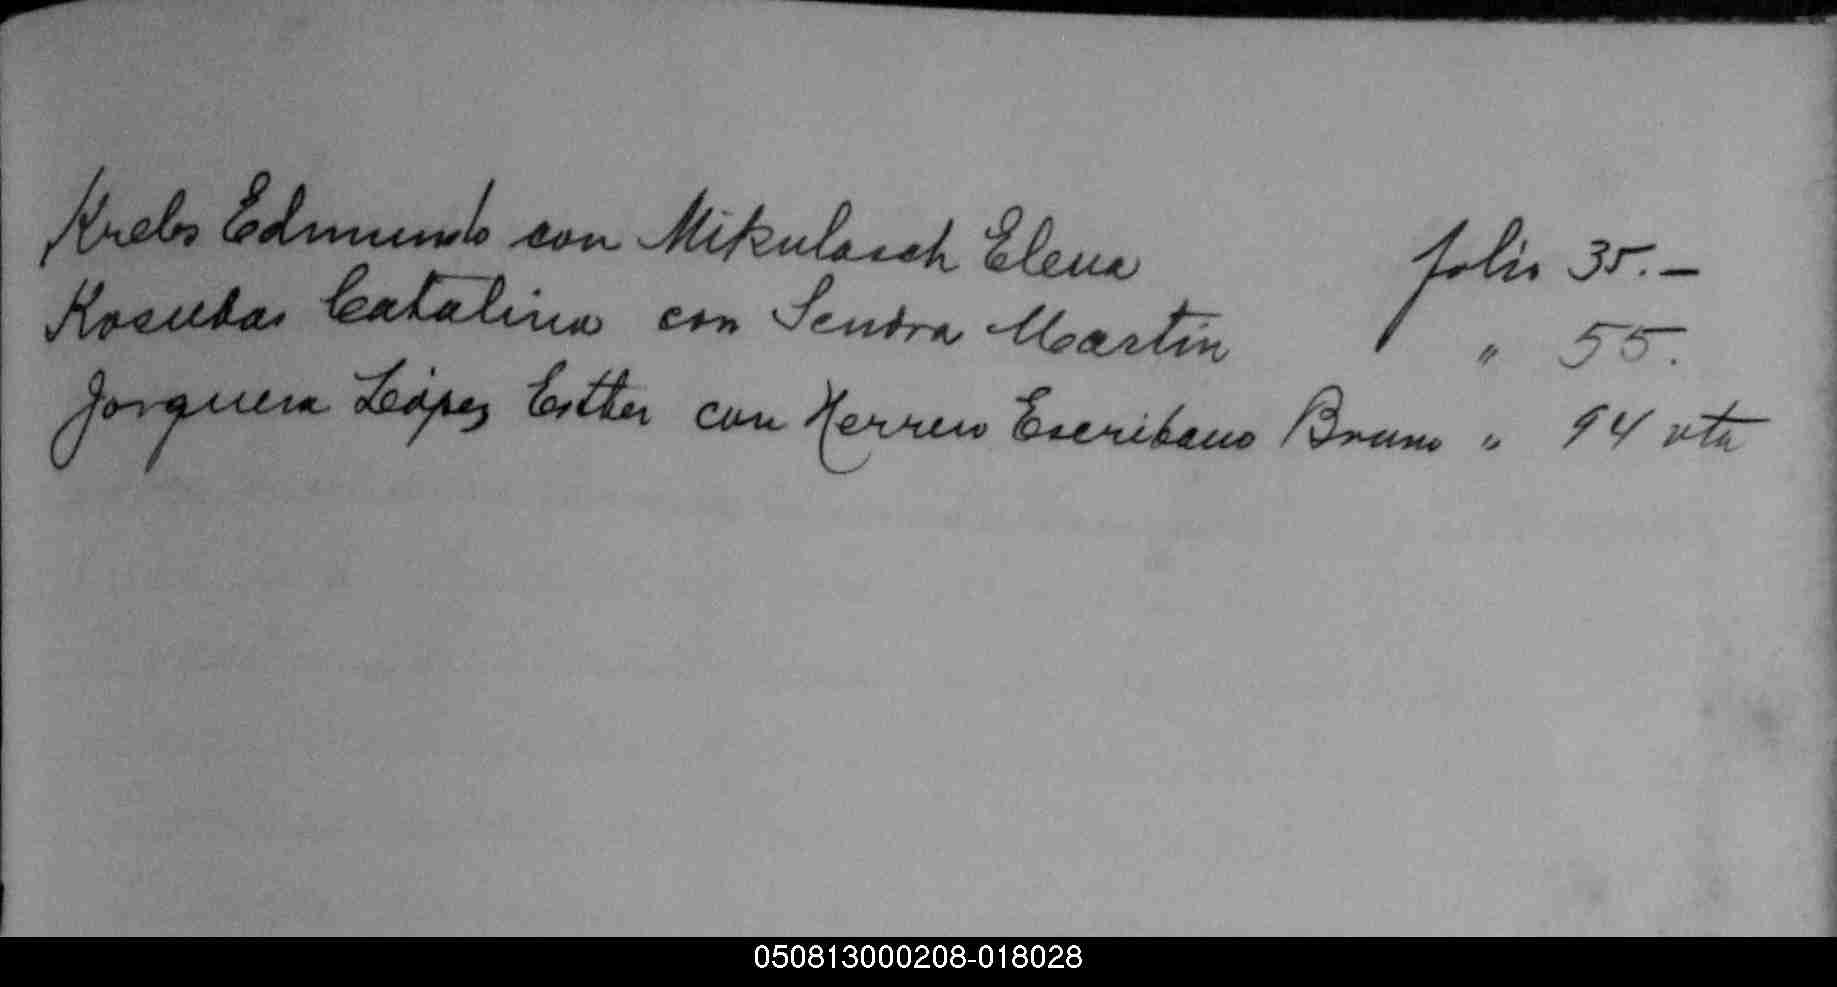 Krebs Edmundo con Mikulasch Elena folio 35.-
Catalina con Sendra Martin " 55.
Jorquera López Esther con Herrera Escribano Bruno " 94 vta
050813000208-018028